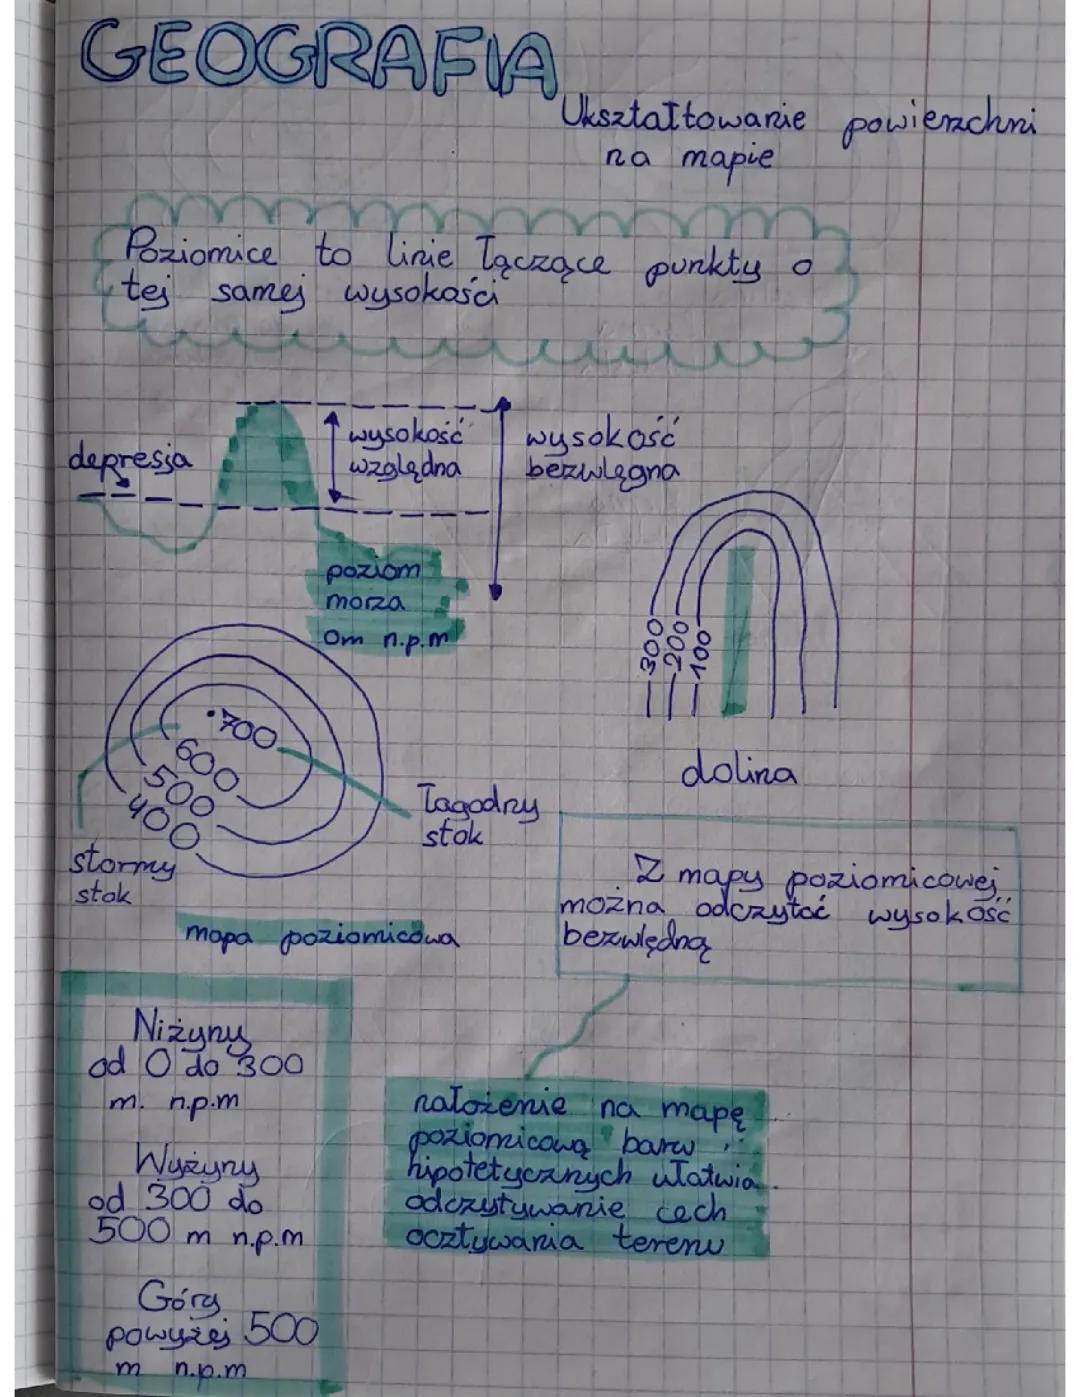 GEOGRAFIA
Ukształtowanie powierzchni
na mapie
Poziomice to linie łączące punkty o
tej samej wysokości
depresja
wysokość
względna
wysokość
bezwlęgna
poziom
morza
0m n.p.m
300
200
100
dolina
.700
600
500
400
łagodny
stok
stormy
stok
mapa poziomicowa
Z mapy poziomicowej
można odczytać wysokość
bezwlędną
Niżyny
od 0 do 300
m. n.p.m
Wyżyny
od 300 do
500 m n.p.m
Góry
powyżej 500
m n.p.m
nałożenie na mapę
poziomicową barw
hipotetycznych ułatwia
odczytywanie cech
ocztywania terenu